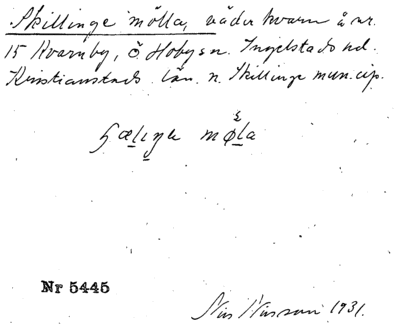 Skillinge mölla, väderkvarn å nr.
15 Kvarnby, Ö. Hoby sn. Ingelstads hd.
Kristianstads län. n. Skillinge mun.cip.
møla
Nr 5445
Nils Nilsson 1931.